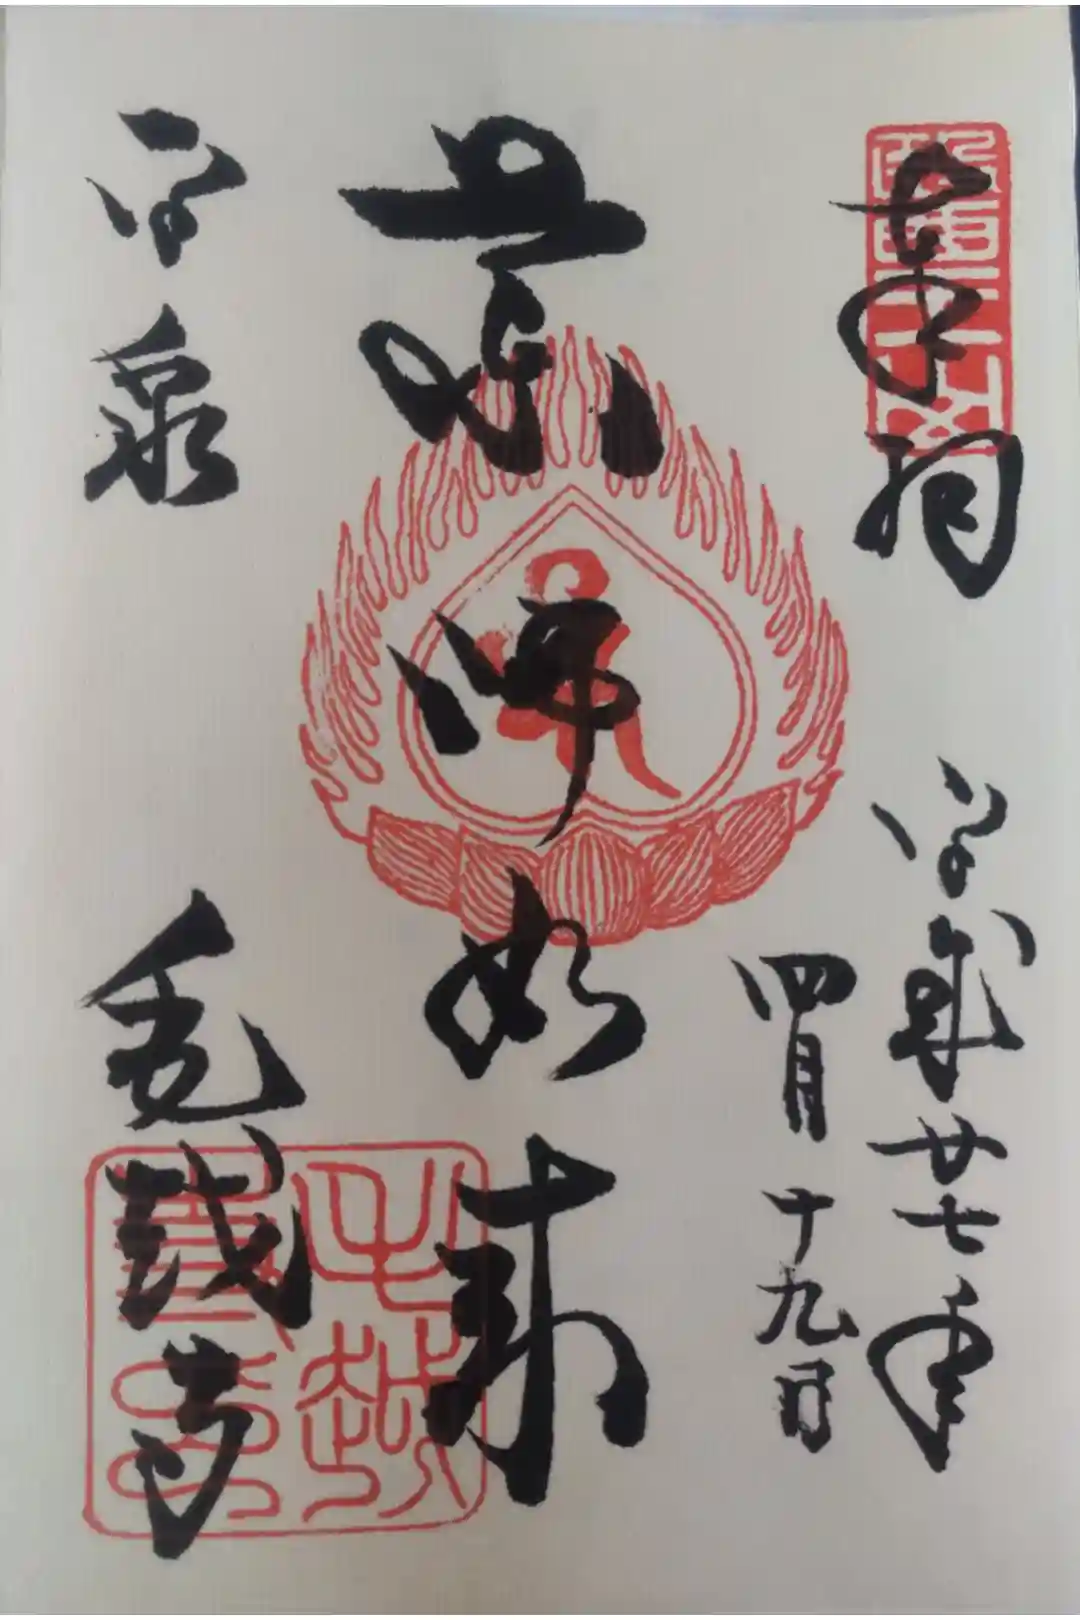 醫王山
奉
平成廿七年
四月十九日
薬師如来
平泉
毛越寺
毛越